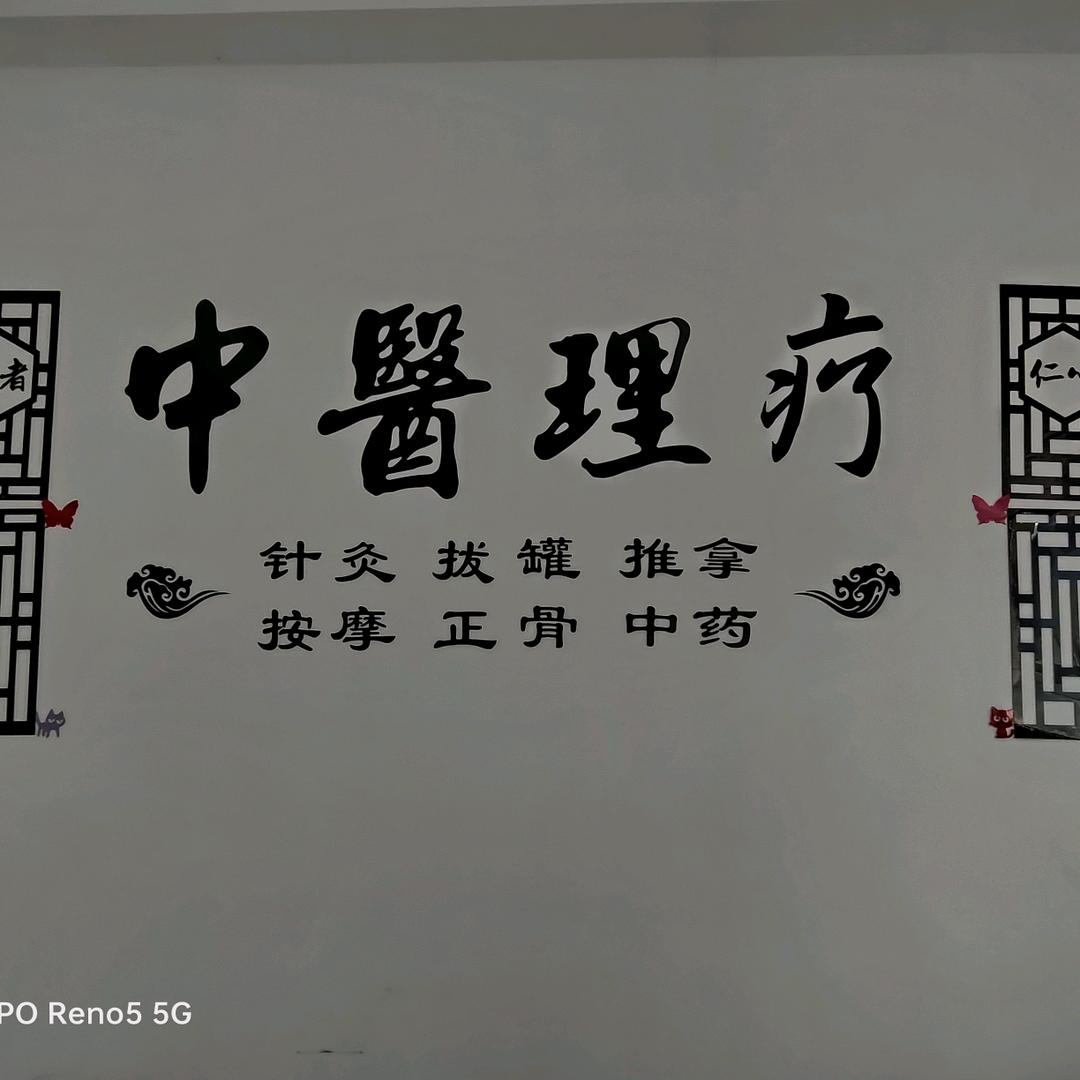 者
中醫理疗
仁心
针灸 拔罐 推拿
按摩 正骨 中药
PO Reno5 5G